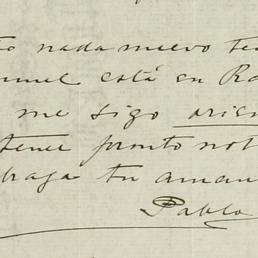 nada nuevo te
está en Ro
me sigo
tener pronto not
haga tu aman
Pablo